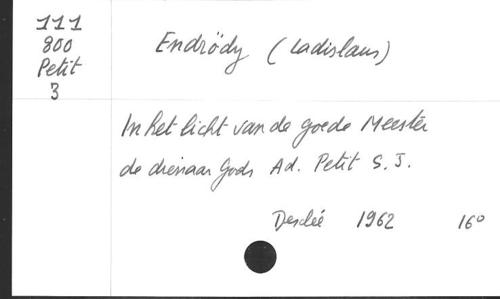 111
800
Petit
3
Endrödy (Ladislaus)
In het licht van de goede Meester
de dienaar Gods Ad. Petit S.J.
Desclée 1962 16°